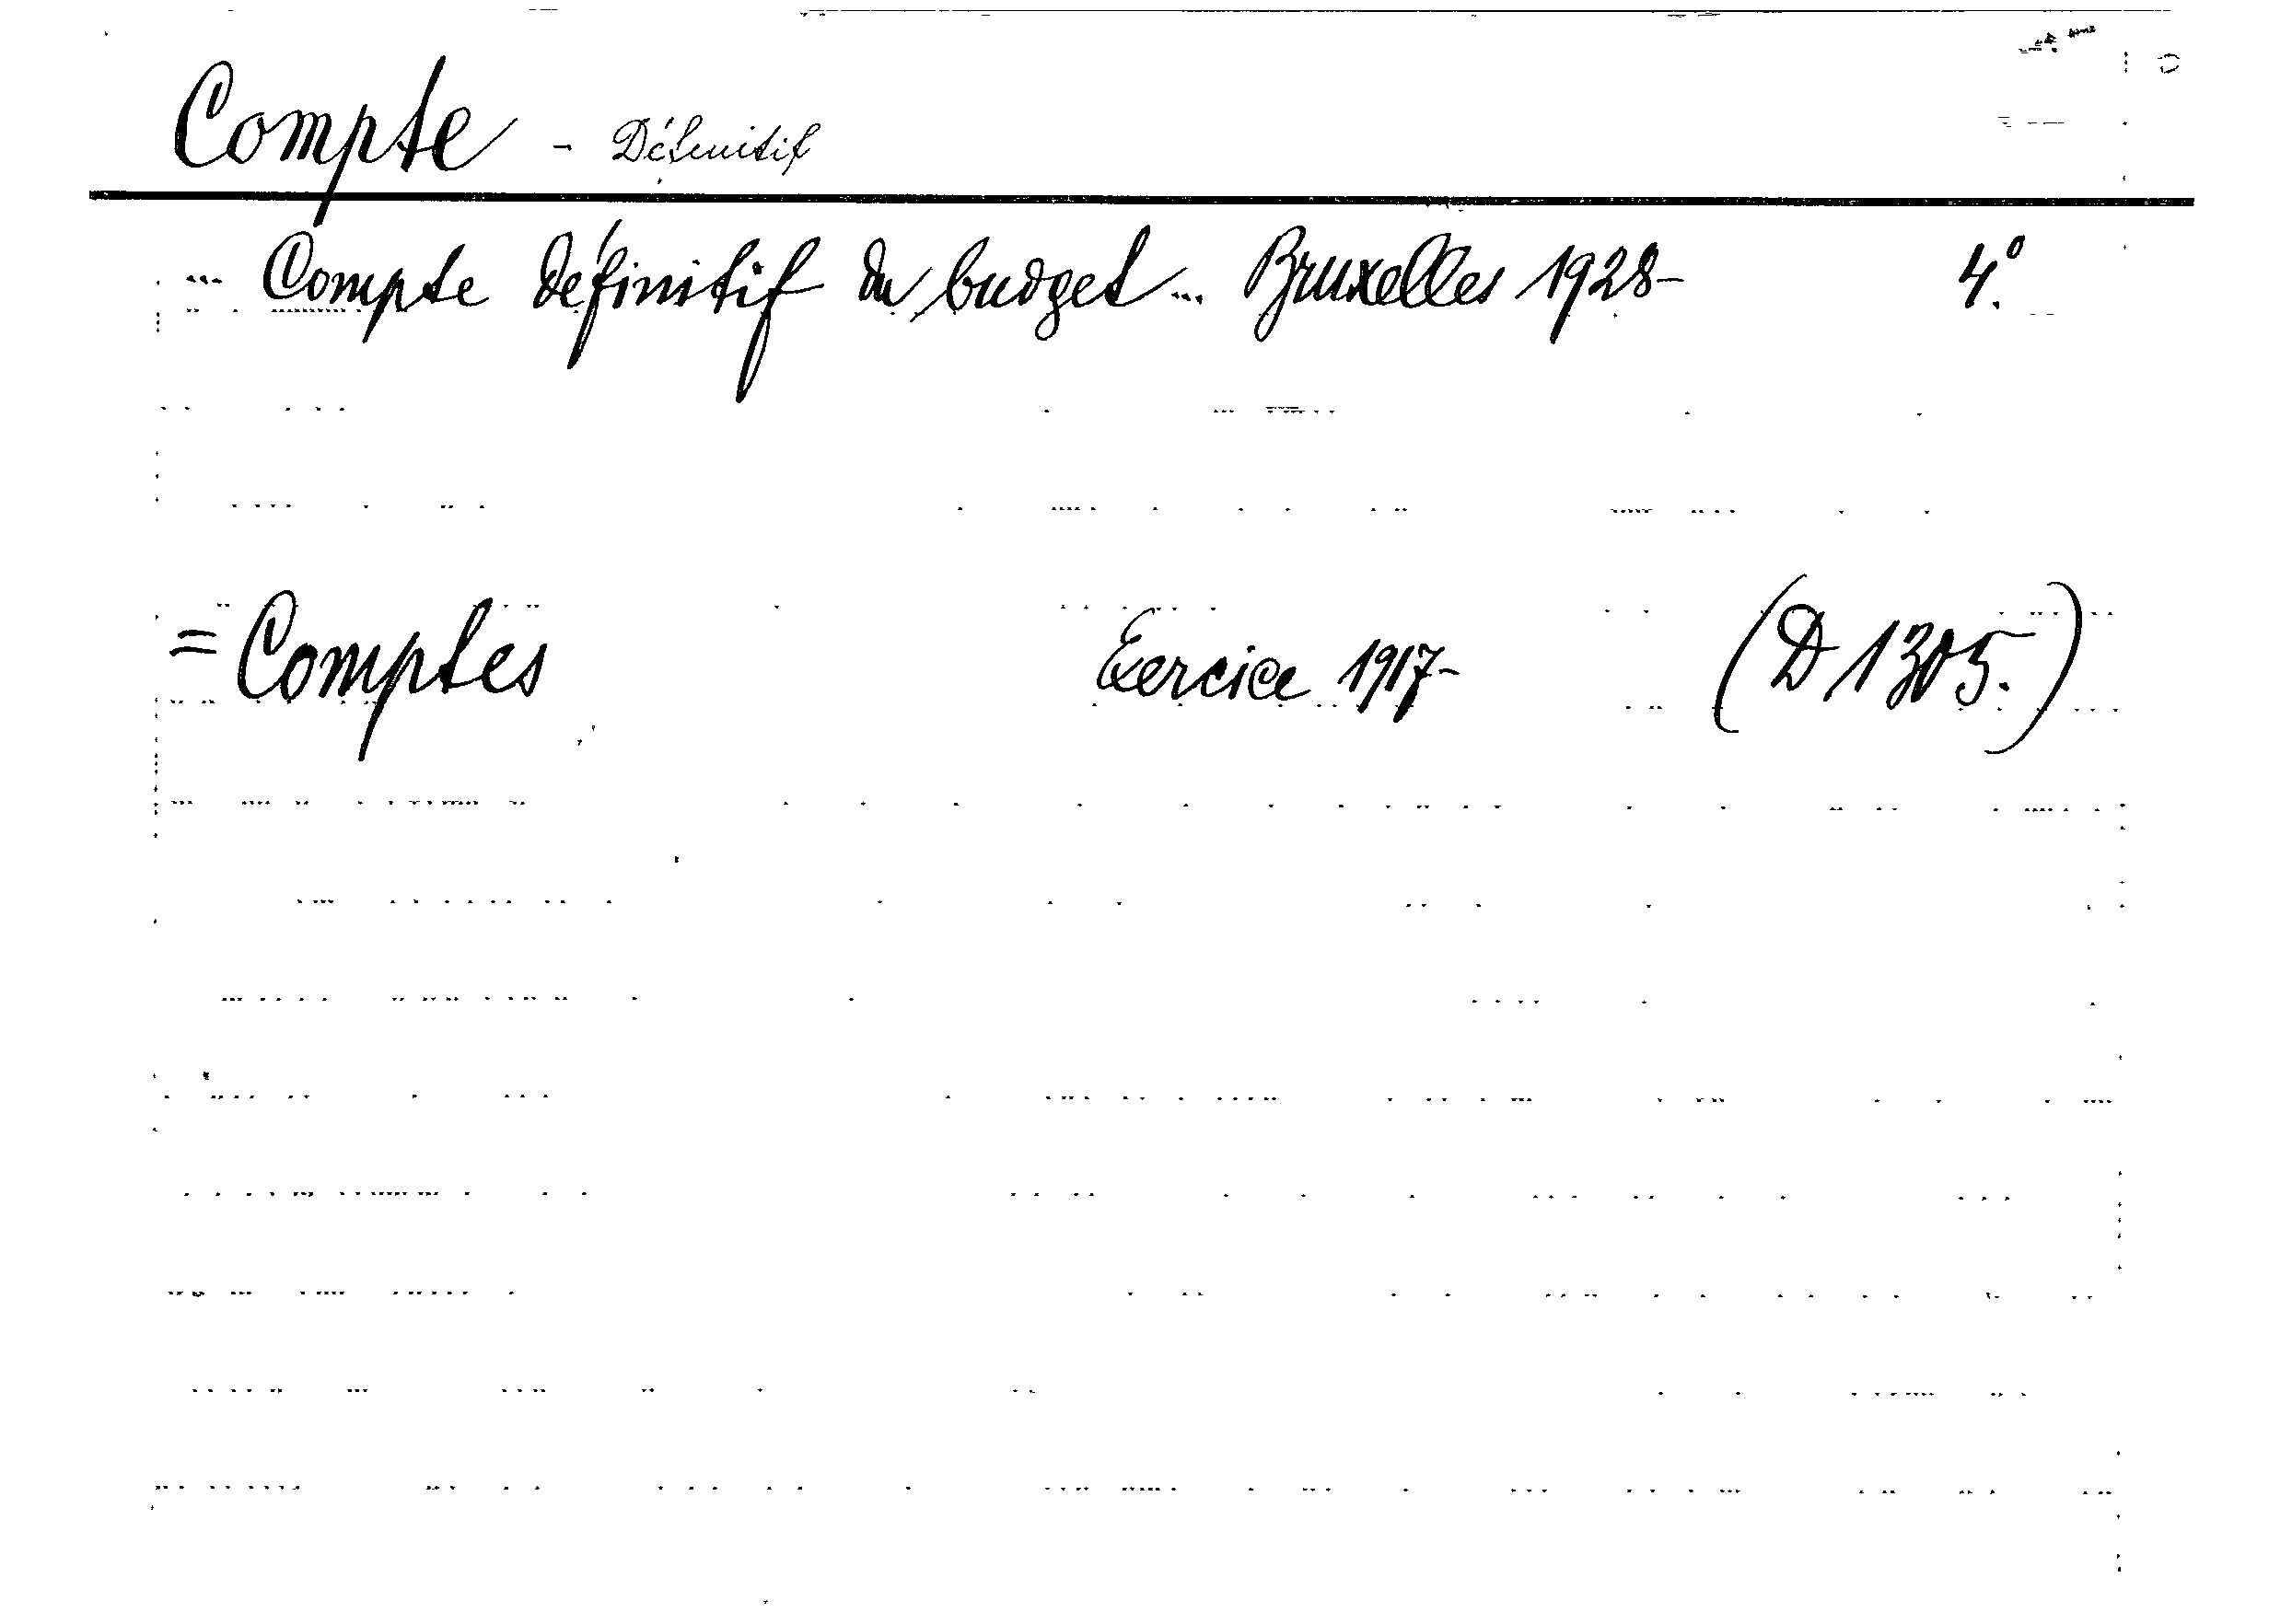 Compte - Définitif
... Compte définitif du budget... Bruxelles 1928- 4.º
= Comptes Exercice 1917- (D 1305.)